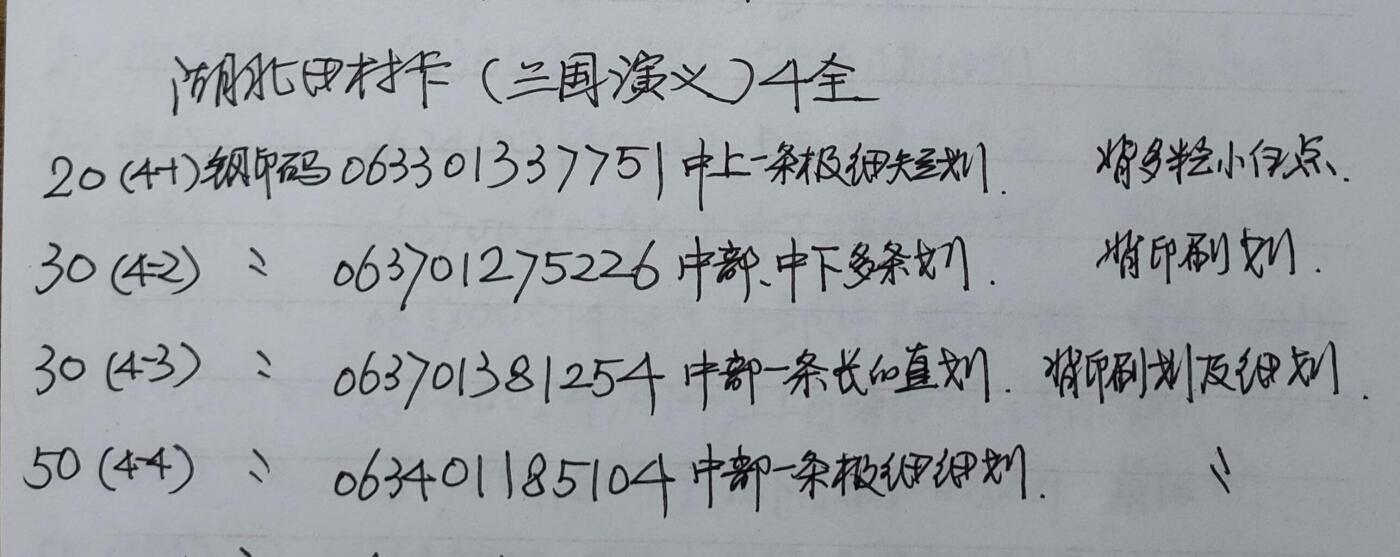 湖北田村卡(三国演义)4全
20(4-1)钢印码063301337751中上一条极细短划. 背多粒小白点.
30(4-2) 〃 063701275226中部、中下多条划. 背印刷划.
30(4-3) 〃 063701381254中部一条长的直划. 背印刷划及细划.
50(4-4) 〃 063401185104中部一条极细细划. 〃